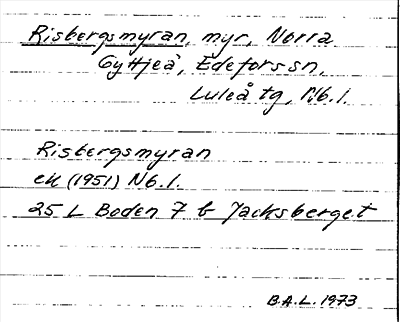 Risbergsmyran, myr, Norra
Gyttjeå, Edeforssn,
Luleå tg, Nb.l.
Risbergsmyran
ek (1951) Nb.l.
25 L Boden 7 b Jacksberget
B.A.L. 1973